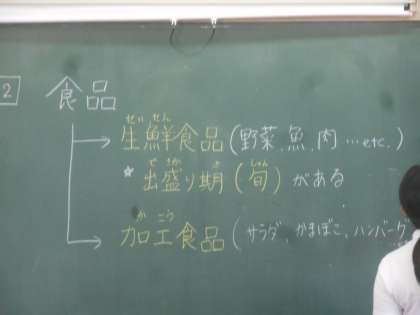 2 食品
せい せん
生鮮食品(野菜、魚、肉…etc.)
で さか き しゅん
☆出盛り期(旬)がある
か こう
加工食品(サラダ、かまぼこ、ハンバーグ